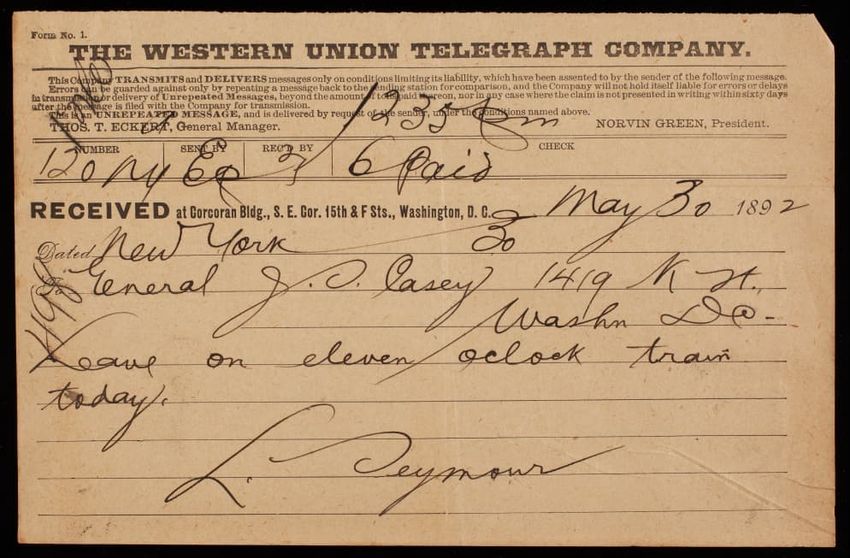 Form No. 1.
THE WESTERN UNION TELEGRAPH COMPANY.
This Company TRANSMITS and DELIVERS messages only on conditions limiting its liability, which have been assented to by the sender of the following message.
Errors can be guarded against only by repeating a message back to the sending station for comparison, and the Company will not hold itself liable for errors or delays
in transmission or delivery of Unrepeated Messages, beyond the amount of tolls paid thereon, nor in any case where the claim is not presented in writing within sixty days
after the message is filed with the Company for transmission.
This is an UNREPEATED MESSAGE, and is delivered by request of the sender, under the conditions named above.
THOS. T. ECKERT, General Manager. NORVIN GREEN, President.
1235
NUMBER SENT BY REC'D BY CHECK
120 ny 6 Paid
RECEIVED at Corcoran Bldg., S. E. Cor. 15th & F Sts., Washington, D. C. May 30 1892
Dated New York 30
To General J. S. Casey 1419 K St.,
Washn DC-
Leave on eleven oclock train
today.
L. Seymour